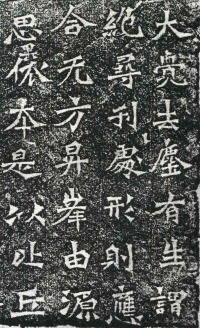 大覺去塵有生謂
絕尋刊處形則應
合无方昇峯由源
思本是以比丘